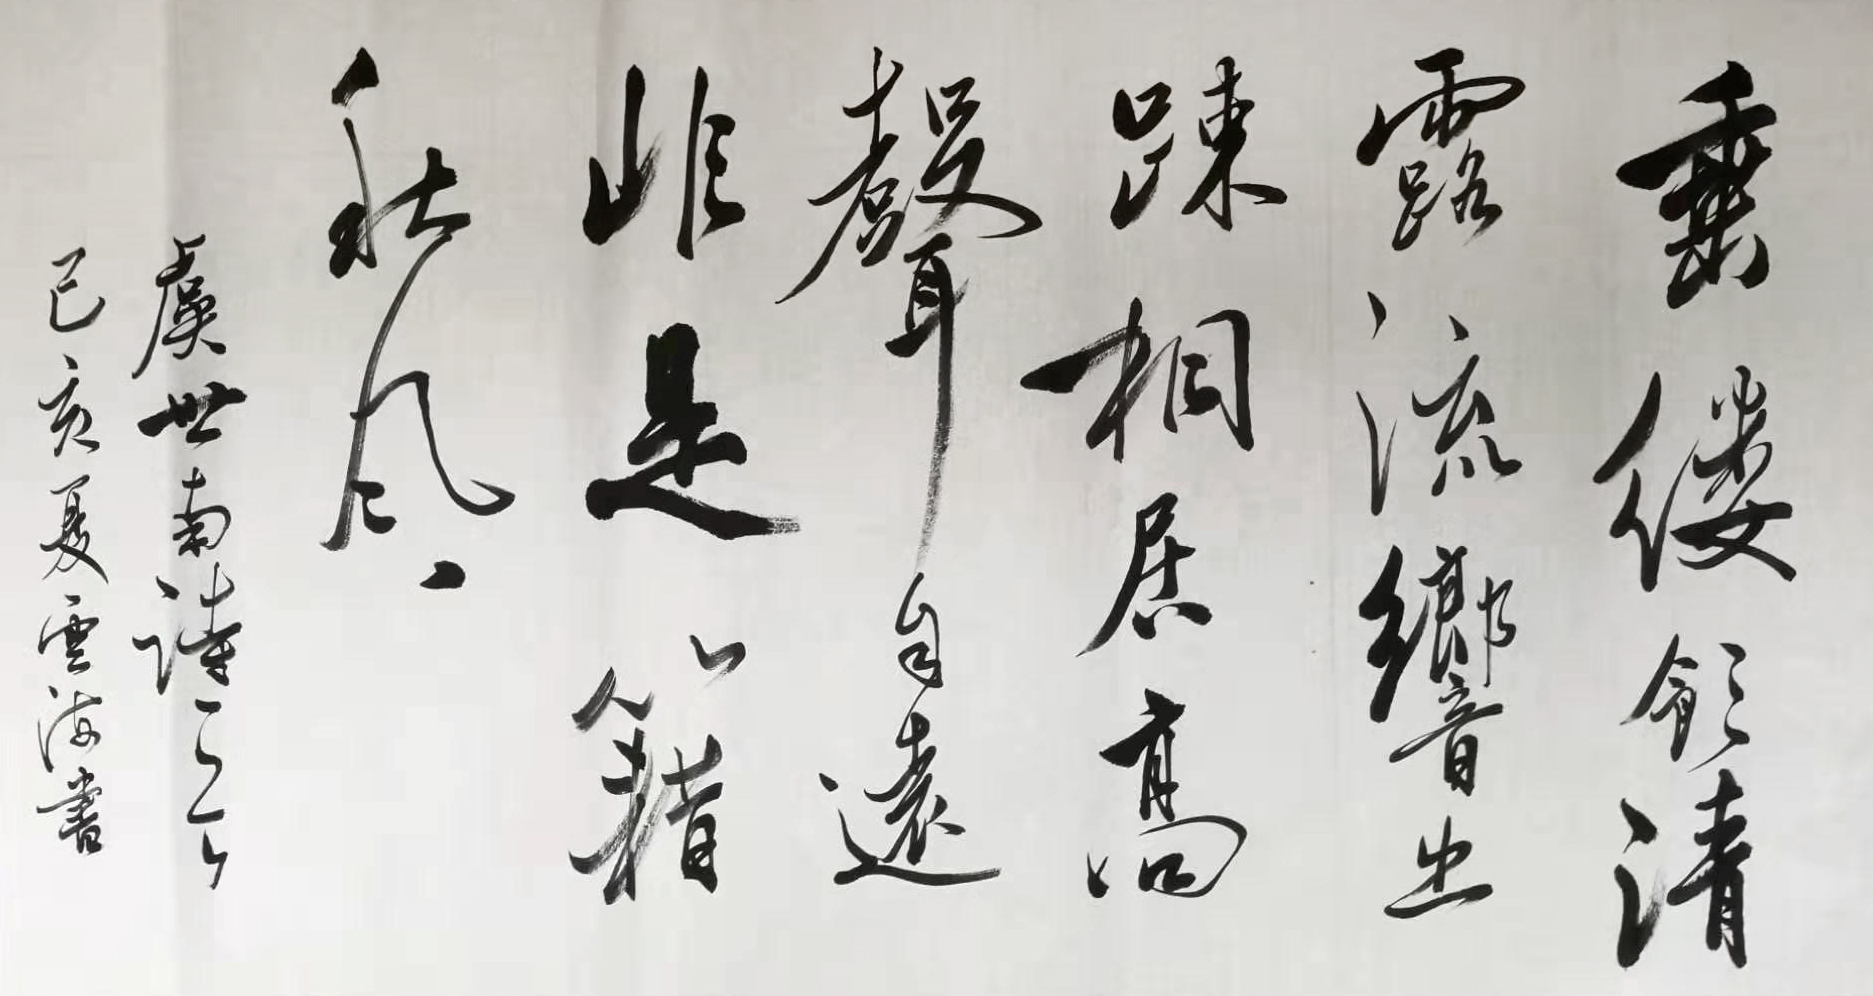 垂緌飲清
露流響出
踈桐居高
聲自遠
非是籍
秋風
虞世南詩
己亥夏雲海書